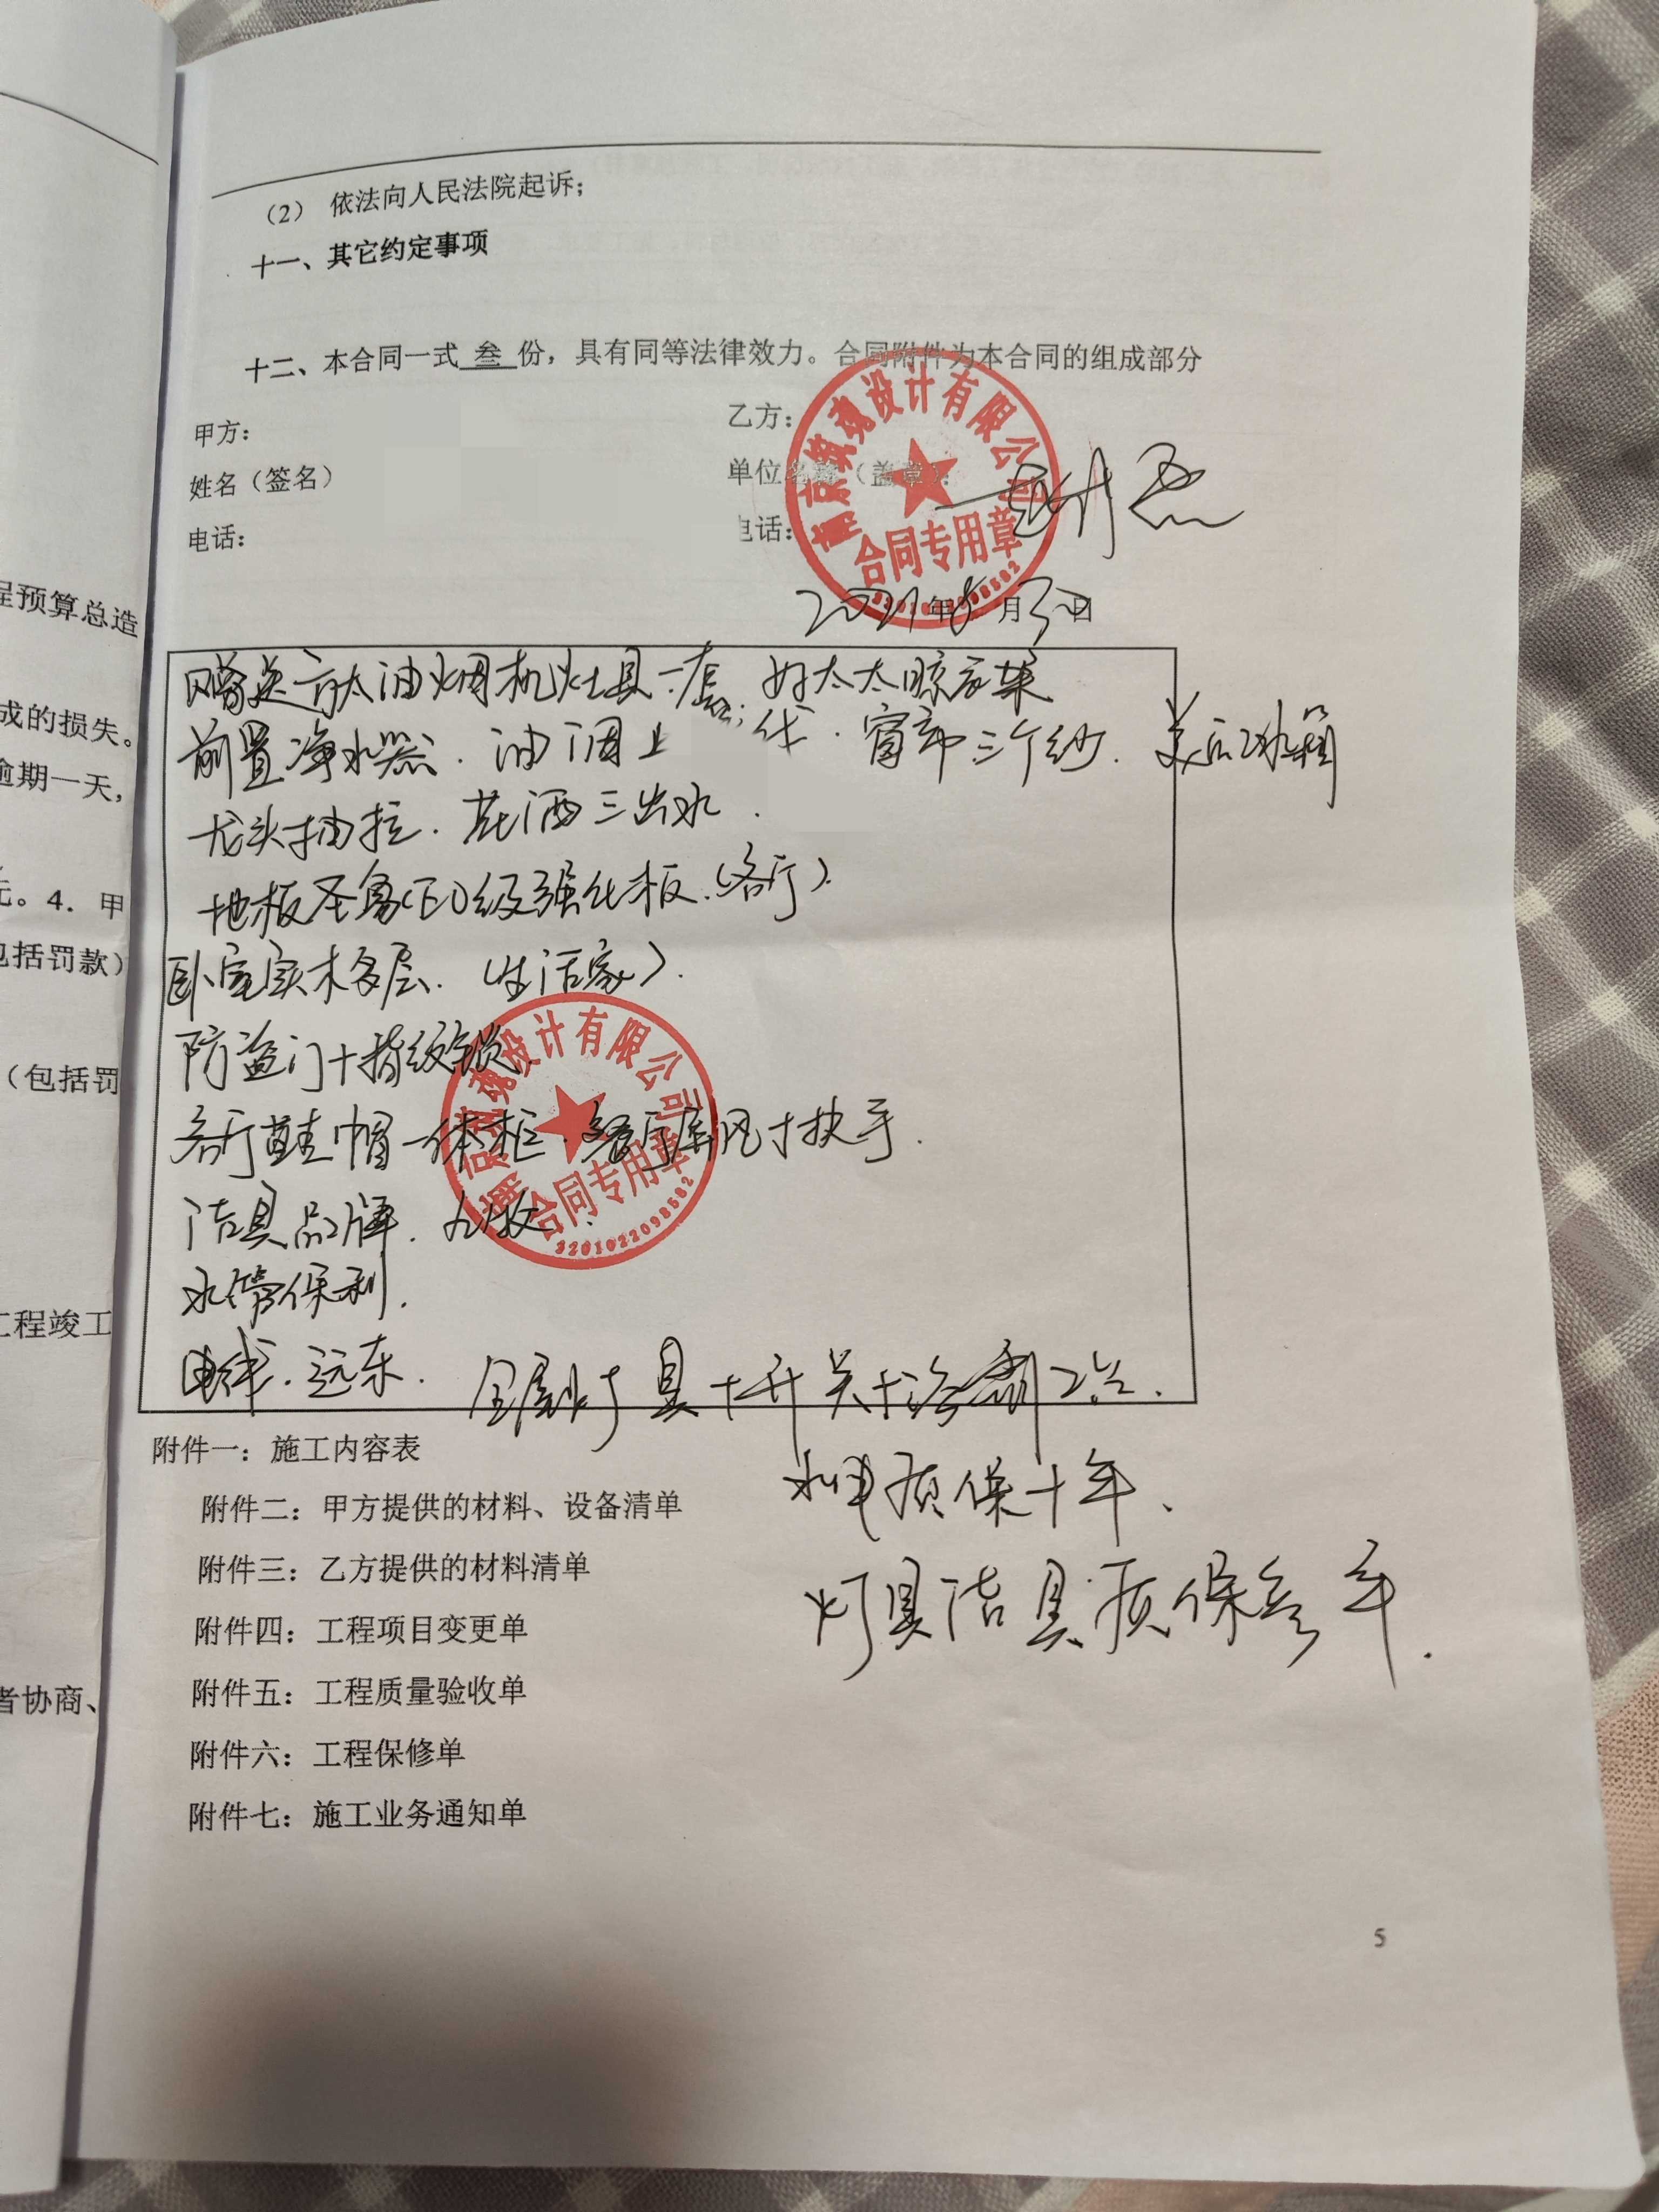 （2） 依法向人民法院起诉；
十一、其它约定事项
十二、本合同一式 叁 份，具有同等法律效力。合同附件为本合同的组成部分
甲方：
乙方：
姓名（签名）
单位名称（盖章）：
电话：
电话：
南京筑魂设计有限公司
合同专用章
2021年8月30日
赠送方太油烟机灶具一套；好太太晾衣架
前置净水器．油 ．窗帘三个纱．美的冰箱
龙头抽拉．花洒三出水．
地板圣象（E0）级强化板．（客厅）．
卧室实木多层．（生活家）．
防盗门＋指纹锁
客厅鞋帽一体柜． 扶手．
洁具品牌．九牧．
水管保利．
电线．远东．
全屋灯具＋开关＋
南京筑魂设计有限公司
合同专用章
3201022098502
水电质保十年、
灯具洁具质保叁年．
附件一：施工内容表
附件二：甲方提供的材料、设备清单
附件三：乙方提供的材料清单
附件四：工程项目变更单
附件五：工程质量验收单
附件六：工程保修单
附件七：施工业务通知单
5
程预算总造
成的损失。
逾期一天，
元。4. 甲
包括罚款）
（包括罚
工程竣工
者协商、